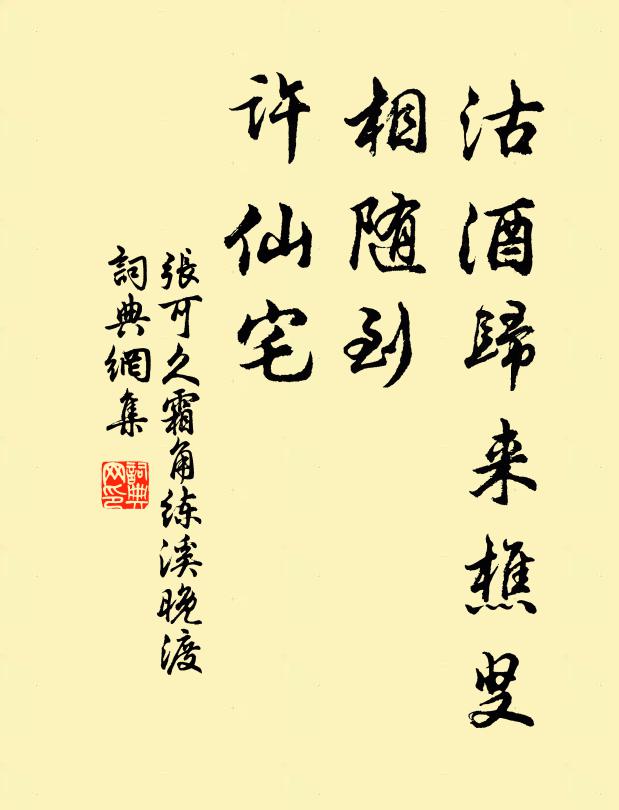 沽酒歸来樵叟
相随到
許仙宅
張可久霜角练溪晚渡
詞典網集
詞典网印